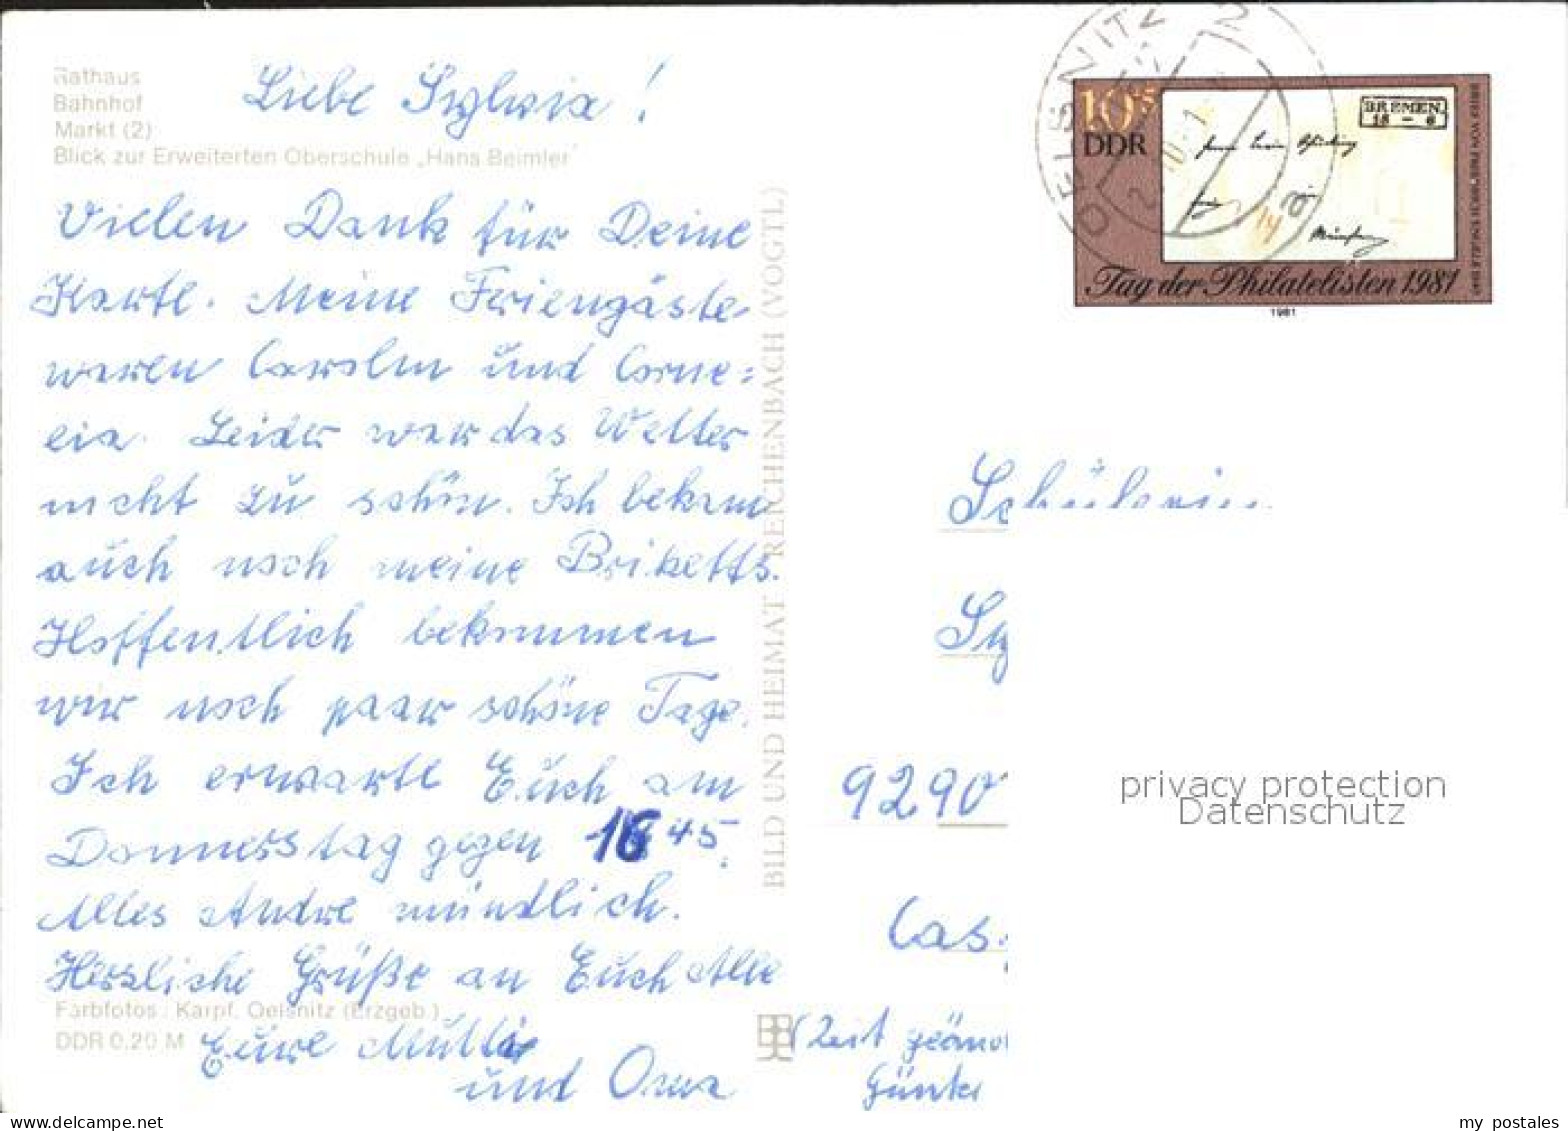 Rathaus
Bahnhof
Markt (2)
Blick zur Erweiterten Oberschule „Hans Beimler"
Liebe Sylvia!
Vielen Dank für Deine
Karte. Meine Feriengäste
waren Carolin und Corne=
lia. Leider war das Wetter
nicht zu schön. Ich bekam
auch noch meine Briketts.
Hoffentlich bekommen
wir noch paar schöne Tage.
Ich erwarte Euch am
Donnerstag gegen 16 45.
Alles Andre mündlich.
Herzliche Grüße an Euch Alle
Eure Mutti
und Oma
Farbfotos: Karpf, Oelsnitz (Erzgeb.)
DDR 0,20 M
BILD UND HEIMAT REICHENBACH (VOGTL)
OELSNITZ 2
a
10+5
DDR
BREMEN
Tag der Philatelisten 1981
1981
Schülerin
Sy
9290
(Zeit geänd
privacy protection
Datenschutz
my postales